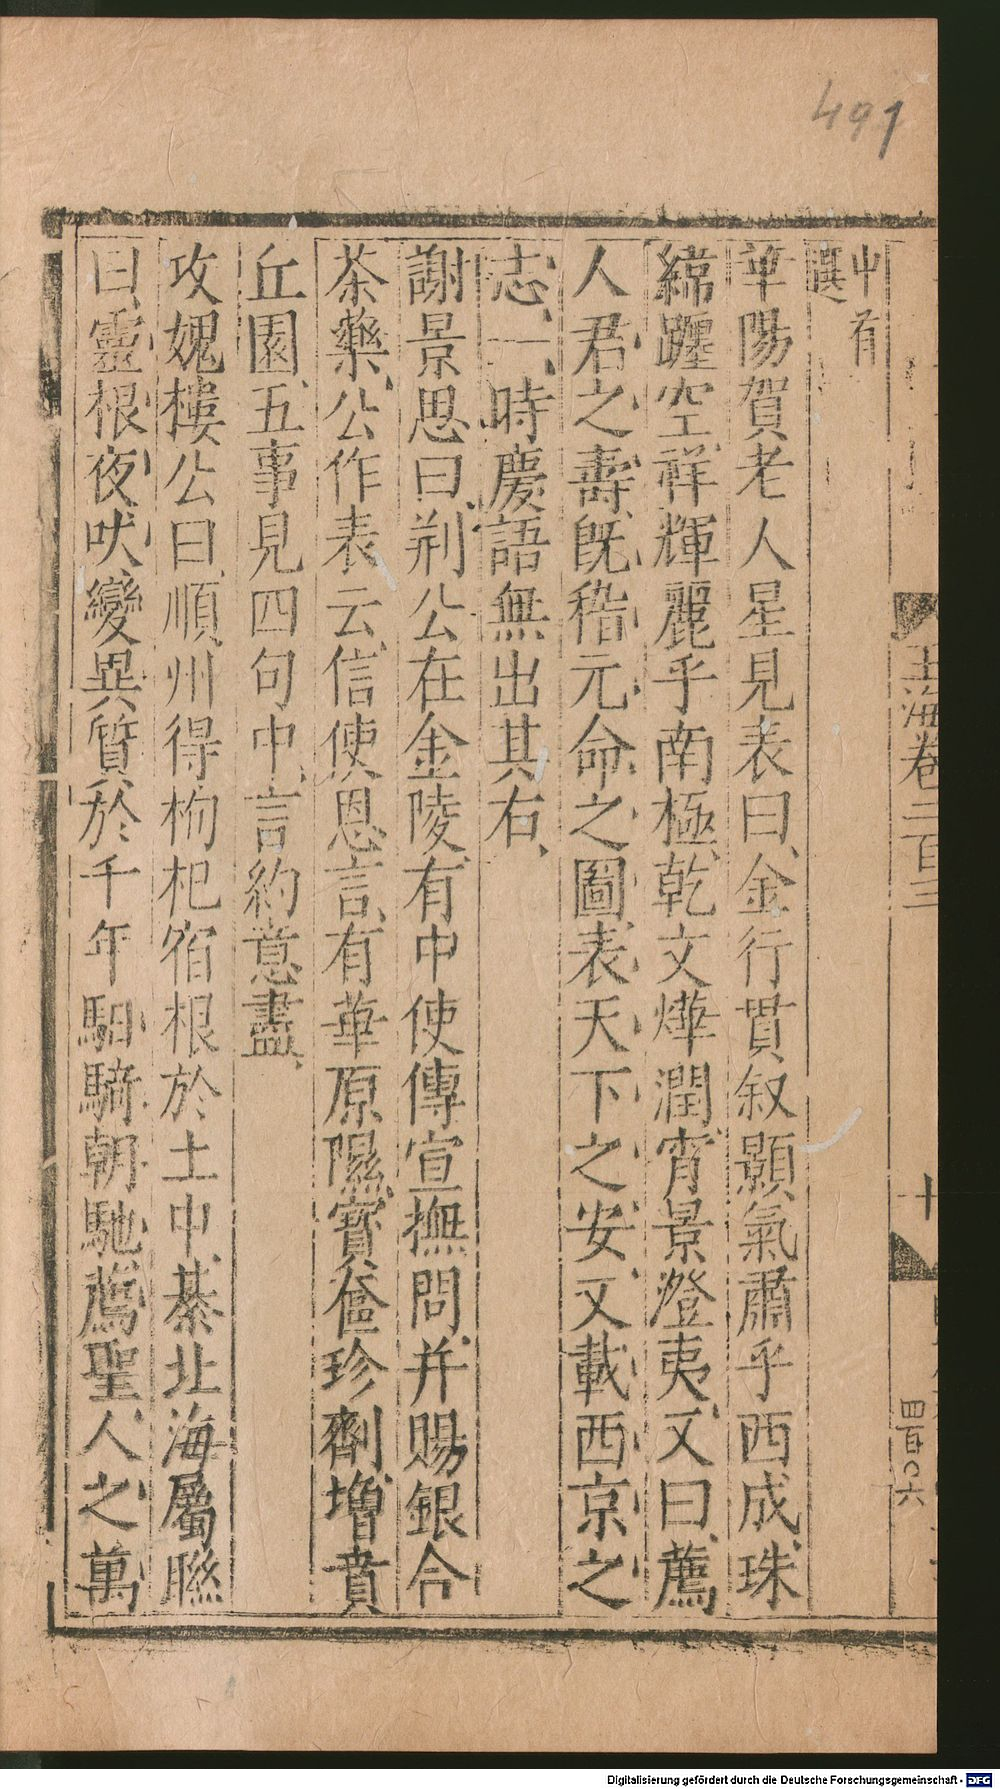 491
中有
選
華陽賀老人星見表曰、金行貫叙、顥氣肅乎西成、珠
緯躔空、祥輝麗乎南極、乾文燁潤、宵景澄夷、又曰、薦
人君之壽、旣稽元命之圖、表天下之安、又載西京之
志、一時慶語無出其右、
謝景思曰、荆公在金陵、有中使傳宣撫問、并賜銀合
茶藥、公作表云、信使恩言、有華原隰、寶奩珍劑、增賁
丘園、五事見四句中、言約意盡、
攻媿樓公曰、順州得枸杞宿根於土中、綦北海屬聯
曰、靈根夜吠、變異質於千年、馹騎朝馳、薦聖人之萬
玉海卷二百三
十
四百〇六
Digitalisierung gefördert durch die Deutsche Forschungsgemeinschaft - DFG